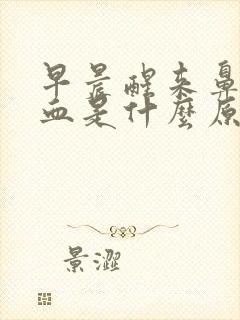 早晨醒来鼻
血是什麼原
景澀